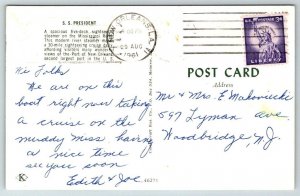 S. S. PRESIDENT
A spacious five-deck, sightseeing
steamer on the Mississippi
This modern river steamer
a 30-mile sightseeing cruise
affording visitors many wonderful
views of the Port of New Orleans,
second largest port in the U. S.
NEW ORLEANS, LA.
29 AUG
1961
LIBERTY
POST CARD
Address
Hi Folks
We are on this
boat right now taking
a cruise on the
muddy Miss having
a nice time
see you soon
Edith & Joe
Mr & Mrs E. Makoviecki
597 Lyman ave
Woodbridge, N.J.
K